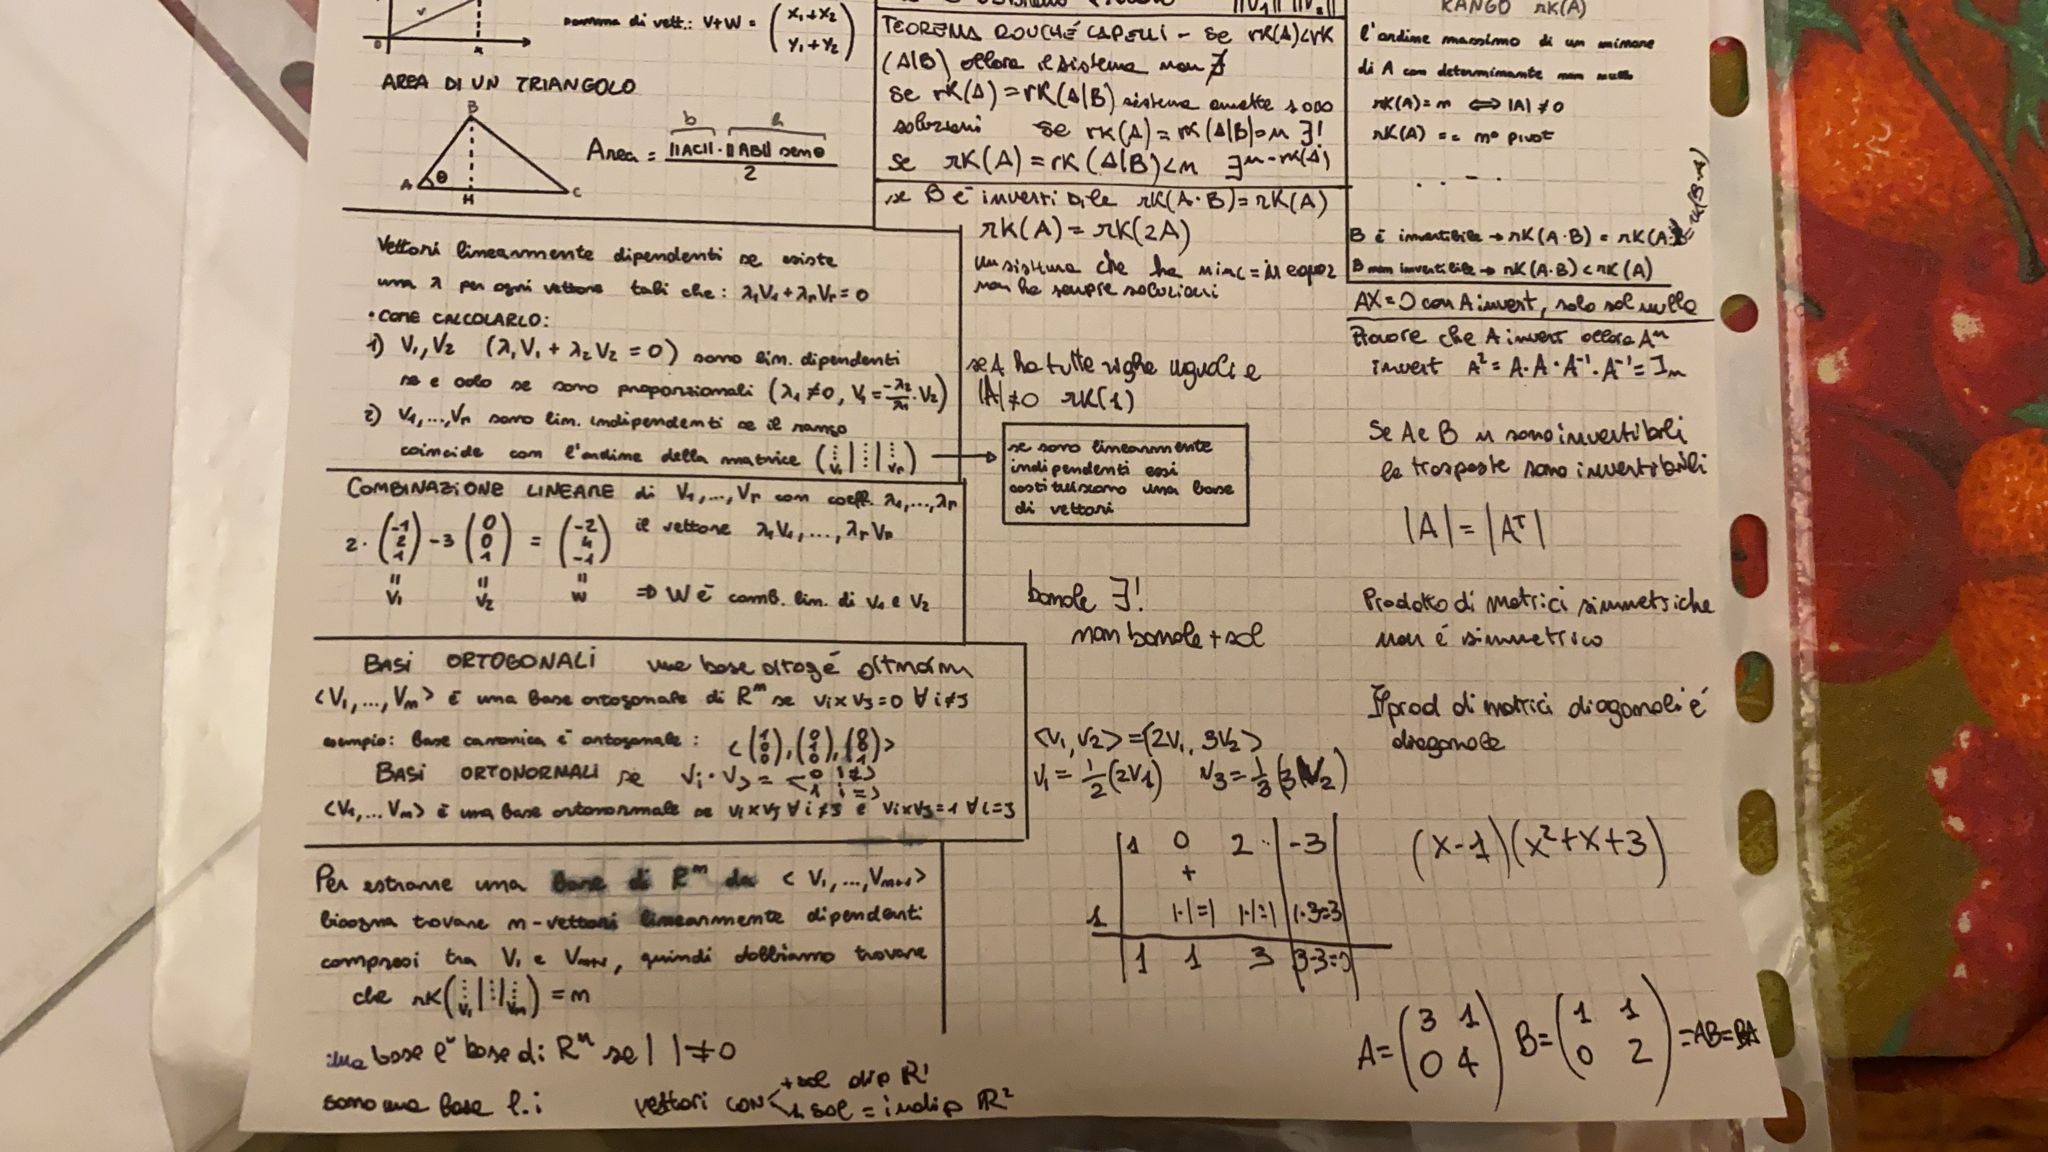 somma di vett.: V+W = (X1+X2
Y1+Y2)
AREA DI UN TRIANGOLO
B
A θ H C
Area = ||AC|| · ||AB|| senθ / 2
b h
Vettori linearmente dipendenti se esiste
una λ per ogni vettore tali che: λ1V1+λrVr=0
• COME CALCOLARLO:
1) V1,V2 (λ1V1 + λ2V2 = 0) sono lin. dipendenti
se e solo se sono proporzionali (λ1≠0, V1=-λ2/λ1·V2)
2) V1,...,Vr sono lin. indipendenti se il rango
coincide con l'ordine della matrice (⋮V1|⋮|⋮Vr)
se sono linearmente
indipendenti essi
costituiscono una base
di vettori
COMBINAZIONE LINEARE di V1,...,Vr con coeff. λ1,...,λr
il vettore λ1V1,...,λrVr
2·(-1 2 1) -3(0 0 1) = (-2 4 -1)
= V1 = V2 = W ⇒ W è comb. lin. di V1 e V2
BASI ORTOGONALI una base ortog é
<V1,...,Vm> è una base ortogonale di Rᵐ se vi×vj=0 ∀i≠j
esempio: Base canonica è ortogonale: <(1 0 0),(0 1 0),(0 0 1)>
BASI ORTONORMALI se Vi·Vj = < 0 i≠j
1 i=j
<V1,...Vm> è una base ortonormale se vi×vj ∀i≠j e vi×vj=1 ∀i=j
Per estrarre una Base di Rᵐ da <V1,...,Vm+1>
bisogna trovare m-vettori linearmente dipendenti
compresi tra V1 e Vm+1, quindi dobbiamo trovare
che rK(⋮V1|⋮|⋮Vm) = m
una base è base di Rⁿ se | |≠0
sono una base l.i
vettori CON +sol dip R¹
1 sol = indip R²
||V1|| ||V2||
TEOREMA ROUCHÉ CAPELLI - se rK(A)<rK
(A|B) allora il sistema non ∄
se rK(A)=rK(A|B) sistema amette
soluzioni se rK(A)=rK(A|B)=n ∃!
se rK(A)=rK(A|B)<n ∃ n-rK(A)
se B è invertibile rK(A·B)=rK(A)
rK(A)=rK(2A)
un sistema che ha n inc = n equaz
non ha sempre soluzioni
se A ha tutte righe uguali e
|A|≠0 rK(1)
banale ∃!
non banale +sol
<V1,V2>=(2V1, 3V2>
V1=1/2(2V1) V3=1/3(3V2)
1 0 2 -3
+
1 1·1=1 1·1=1 1·3=3
1 1 3 3-3=0
RANGO rK(A)
l'ordine massimo di un minore
di A con determinante non nullo
rK(A)=n ⟺ |A|≠0
rK(A) = n° pivot
B è invertibile → rK(A·B) = rK(A)=rK(B·A)
B non invertibile → rK(A·B) < rK(A)
AX=0 con A invert, solo sol nulla
Provare che A invert allora Aⁿ
invert A²=A·A·A⁻¹·A⁻¹=In
Se A e B n sono invertibili
le trasposte sono invertibili
|A|=|Aᵀ|
Prodotto di matrici simmetriche
non é simmetrico
Il prod di matrici diagonali é
diagonale
(x-1)(x²+x+3)
A=(3 1
0 4) B=(1 1
0 2) =AB=BA